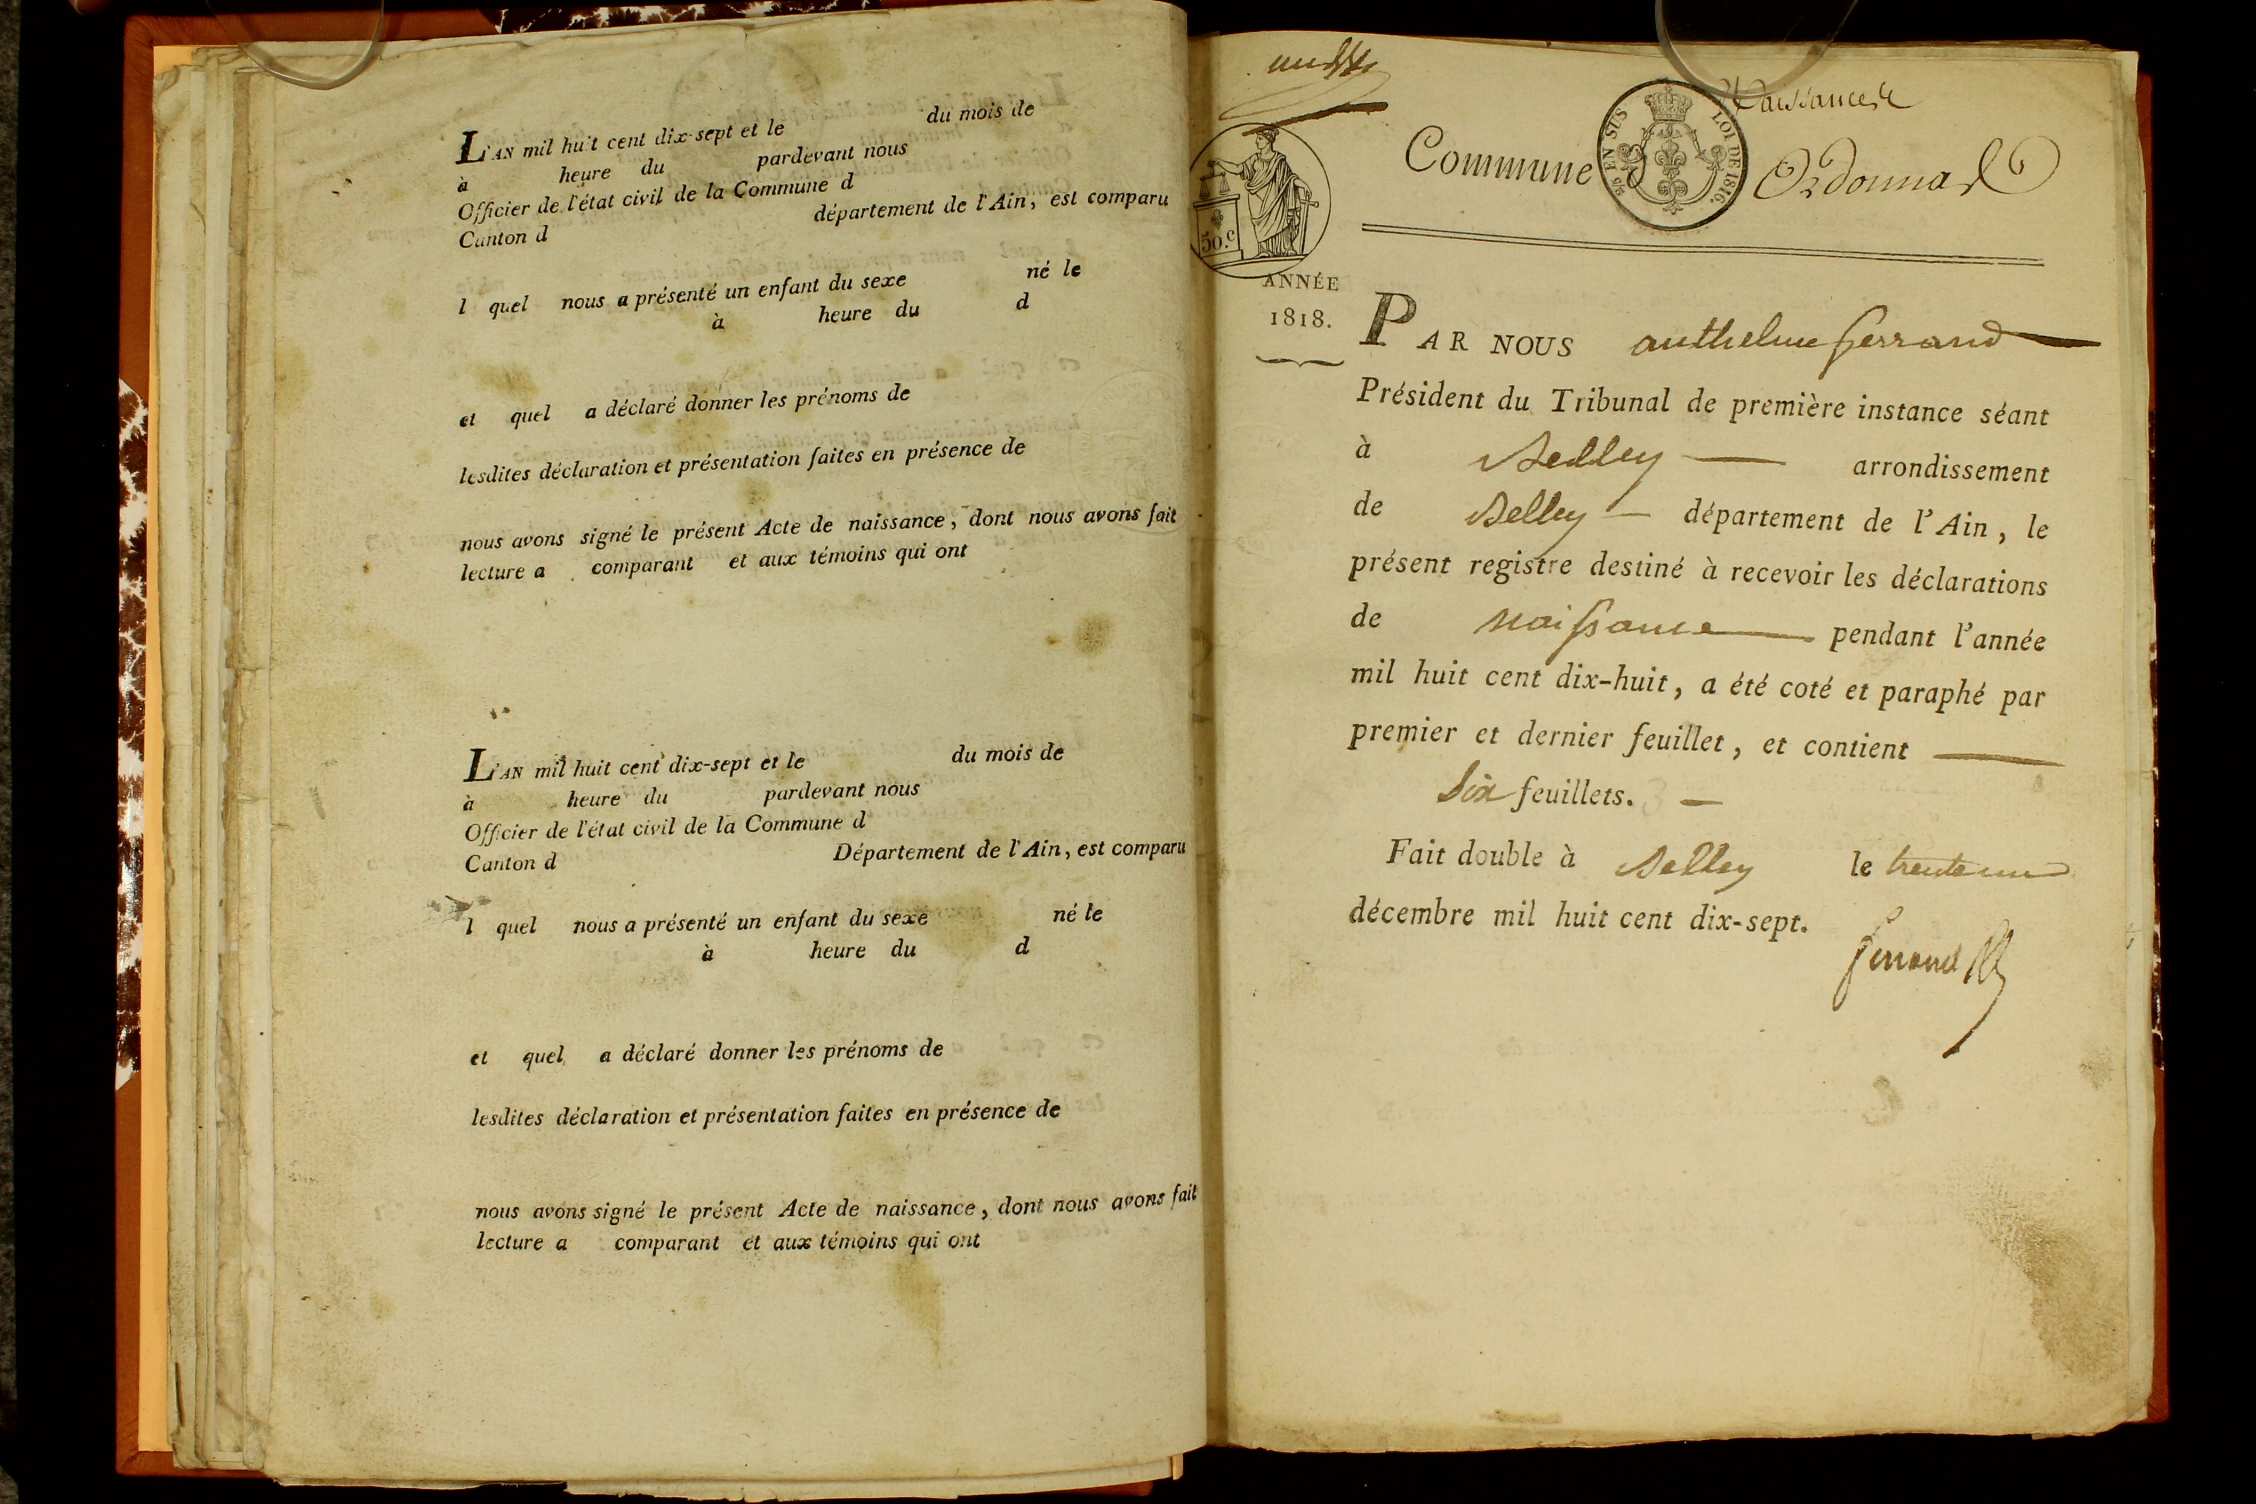 L'AN mil huit cent dix-sept et le du mois de
à heure du pardevant nous
Officier de l'état civil de la Commune d
Canton d département de l'Ain, est comparu
l quel nous a présenté un enfant du sexe né le
à heure du d
et quel a déclaré donner les prénoms de
lesdites déclaration et présentation faites en présence de
nous avons signé le présent Acte de naissance, dont nous avons fait
lecture a comparant et aux témoins qui ont
L'AN mil huit cent dix-sept et le du mois de
à heure du pardevant nous
Officier de l'état civil de la Commune d
Canton d Département de l'Ain, est comparu
l quel nous a présenté un enfant du sexe né le
à heure du d
et quel a déclaré donner les prénoms de
lesdites déclaration et présentation faites en présence de
nous avons signé le présent Acte de naissance, dont nous avons fait
lecture a comparant et aux témoins qui ont
Naissances
Commune Ordonnas
EN SUS LOI DE 1816.
50.c
ANNÉE
1818.
PAR NOUS anthelme ferrand
Président du Tribunal de première instance séant
à Belley arrondissement
de Belley département de l'Ain, le
présent registre destiné à recevoir les déclarations
de naissance pendant l'année
mil huit cent dix-huit, a été coté et paraphé par
premier et dernier feuillet, et contient
Six feuillets.
Fait double à Belley le trente un
décembre mil huit cent dix-sept.
ferrand